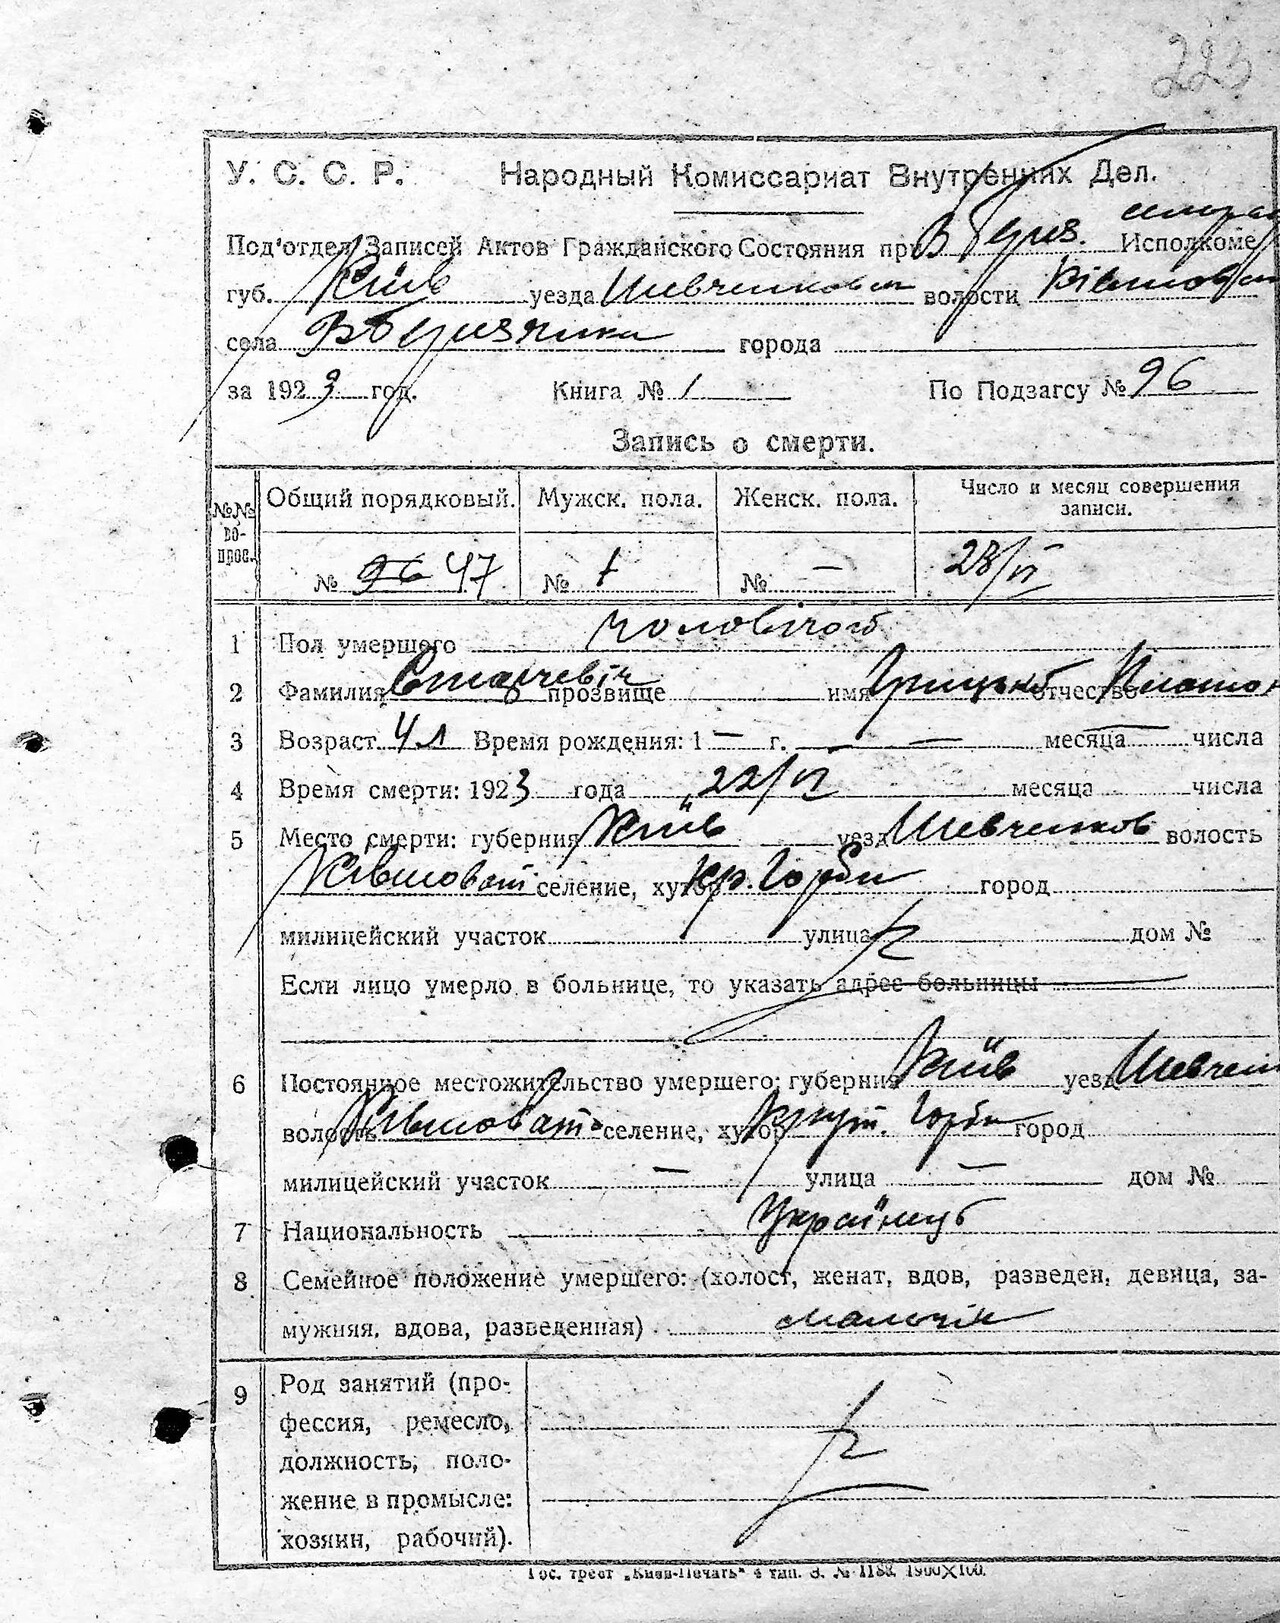 223
У. С. С. Р. Народный Комиссариат Внутренних Дел.
Под'отдел Записей Актов Гражданского Состояния при В Берез. Исполкоме
губ. Київ уезда Шевченковск волости
села ВБерезянка города
за 1923 год. Книга № 1 По Подзагсу № 96
Запись о смерти.
№№ вопрос. Общий порядковый. Мужск. пола. Женск. пола. Число и месяц совершения записи.
№ 96 47 № 1 № — 28/VI
1 Пол умершого чоловічого
2 Фамилия прозвище имя Грицько отчество Платон
3 Возраст 4 л Время рождения: 1 — г. — — месяца — числа
4 Время смерти: 1923 года 22/VI месяца числа
5 Место смерти: губерния Київ уезд Шевченков волость
селение, хутор Кр. Горби город
милицейский участок улица дом №
Если лицо умерло в больнице, то указать адрес больницы
6 Постоянное местожительство умершего: губерния Київ уезд Шевчен
волость селение, хутор Крут. Горби город
милицейский участок — улица — дом №
7 Национальность Українець
8 Семейное положение умершего: (холост, женат, вдов, разведен, девица, за-
мужняя, вдова, разведенная) мальчік
9 Род занятий (про-
фессия, ремесло,
должность, поло-
жение в промысле:
хозяин, рабочий).
Гос. трест „Киев-Печать" 4 тип. З. № 1188. 1900×100.